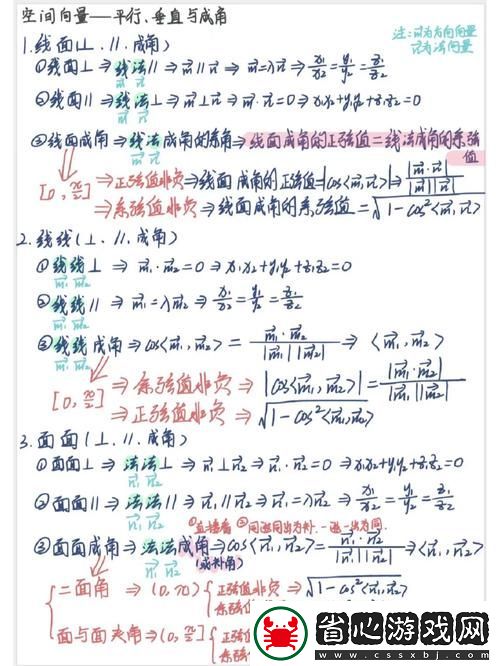 空间向量——平行、垂直与成角
注:m⃗为方向向量
n⃗为法向量
1.线面(⊥、∥、成角)
①线面⊥⇒线法∥⇒m⃗∥n⃗⇒m⃗=λn⃗⇒x₁/x₂=y₁/y₂=z₁/z₂
m⃗ n⃗
②线面∥⇒线法⊥⇒m⃗⊥n⃗⇒m⃗·n⃗=0⇒x₁x₂+y₁y₂+z₁z₂=0
m⃗ n⃗
③线面成角⇒线法成角的余角⇒线面成角的正弦值=线法成角的余弦值
m⃗ n⃗
[0,π/2]⇒正弦值非负⇒线面成角的正弦值=|cos<m⃗,n⃗>|⇒|m⃗·n⃗|/|m⃗||n⃗|
⇒余弦值非负⇒线面成角的余弦值=√1-cos²<m⃗,n⃗>
2.线线(⊥、∥、成角)
①线线⊥⇒m⃗₁·m⃗₂=0⇒x₁x₂+y₁y₂+z₁z₂=0
m⃗₁ m⃗₂
②线线∥⇒m⃗₁=λm⃗₂⇒x₁/x₂=y₁/y₂=z₁/z₂
m⃗₁ m⃗₂
③线线成角⇒cos<m⃗₁,m⃗₂>=m⃗₁·m⃗₂/|m⃗₁||m⃗₂|⇒<m⃗₁,m⃗₂>
m⃗₁ m⃗₂
[0,π/2]⇒余弦值非负⇒|cos<m⃗₁,m⃗₂>|=|m⃗₁·m⃗₂|/|m⃗₁||m⃗₂|
⇒正弦值非负⇒√1-cos²<m⃗₁,m⃗₂>
3.面面(⊥、∥、成角)
①面面⊥⇒法法⊥⇒n⃗₁⊥n⃗₂⇒n⃗₁·n⃗₂=0⇒x₁x₂+y₁y₂+z₁z₂=0
n⃗₁ n⃗₂
②面面∥⇒法法∥⇒n⃗₁∥n⃗₂⇒n⃗₁=λn⃗₂⇒x₁/x₂=y₁/y₂=z₁/z₂
n⃗₁ n⃗₂
①直接看 ②同进同出为补.一进一出为同.
③面面成角⇒法法成角⇒cos<n⃗₁,n⃗₂>=n⃗₁·n⃗₂/|n⃗₁||n⃗₂|⇒<n⃗₁,n⃗₂>
n⃗₁ n⃗₂ (或补角)
二面角⇒(0,π){正弦值非负⇒√1-cos²<n⃗₁,n⃗₂>
余弦值
面与面夹角⇒(0,π/2]{正弦值
余弦
省心游戏网
www.cssxbj.com